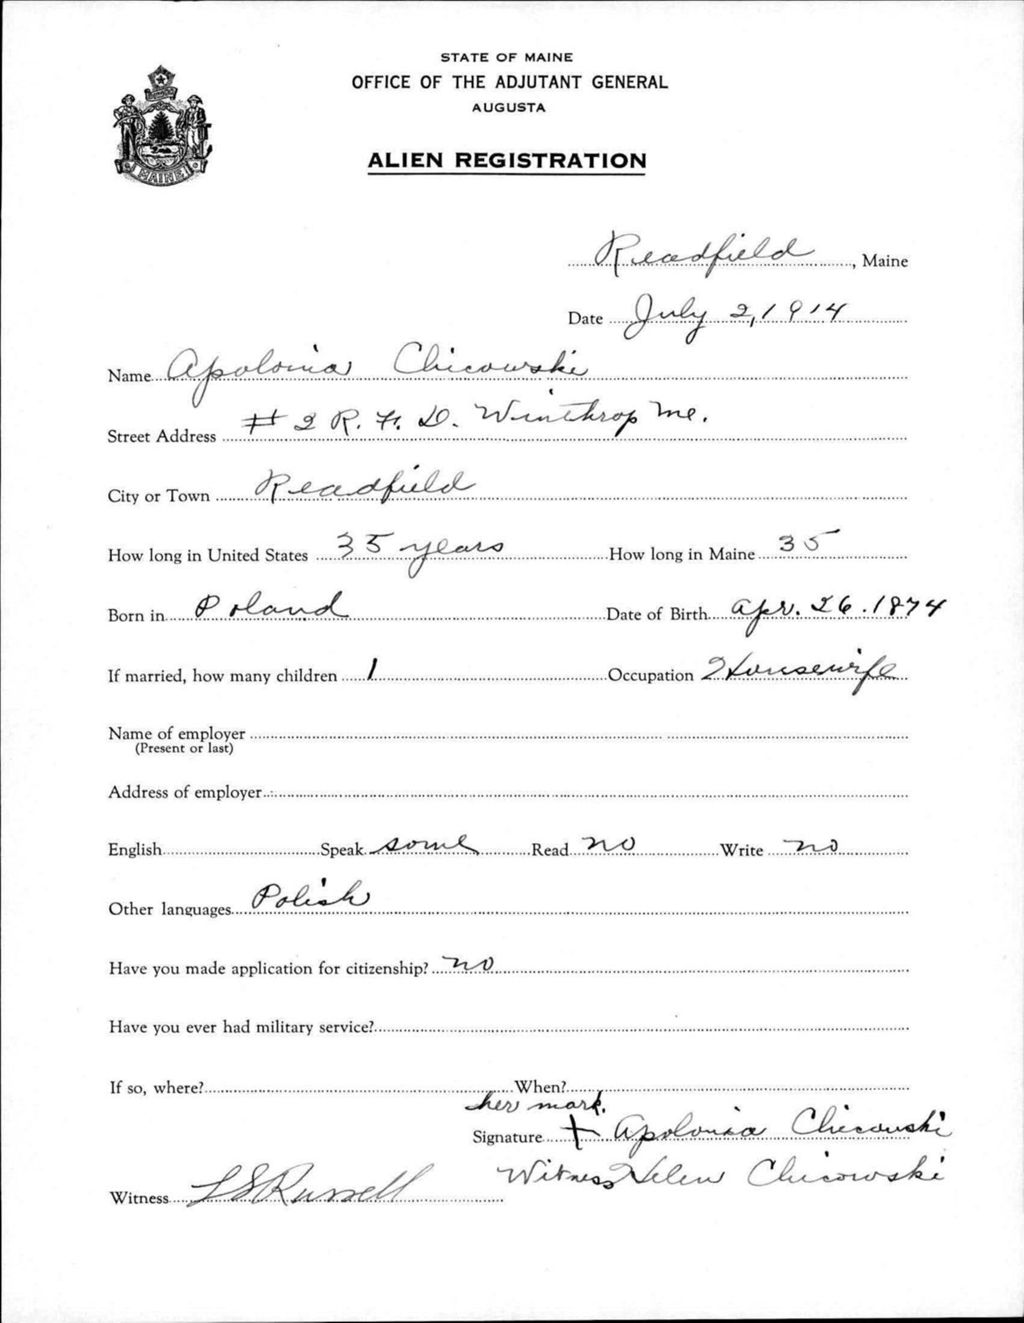 STATE OF MAINE
OFFICE OF THE ADJUTANT GENERAL
AUGUSTA
ALIEN REGISTRATION
Readfield, Maine
Date July 2, 1914
Name Apolonia Chicowski
Street Address #2 R.F.D. Winthrop Me.
City or Town Readfield
How long in United States 35 years How long in Maine 35
Born in Poland Date of Birth Apr. 26. 1874
If married, how many children 1 Occupation Housewife
Name of employer
(Present or last)
Address of employer
English Speak some Read no Write no
Other languages Polish
Have you made application for citizenship? no
Have you ever had military service?
If so, where? When?
her mark.
Signature + Apolonia Chicowski
Witness Helen Chicowski
Witness L S Russell
MAINE